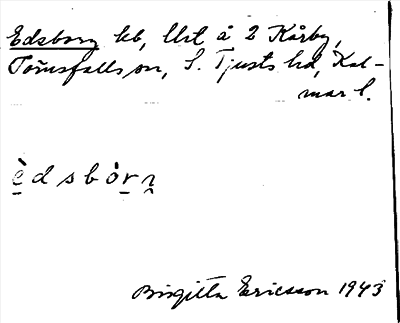 Edsborg kb, lht å 2 Kårby,
Törnsfalls sn, S. Tjusts hd, Kal-
mar l.
è̱dsbòṟṉ
Birgitta Ericsson 1943